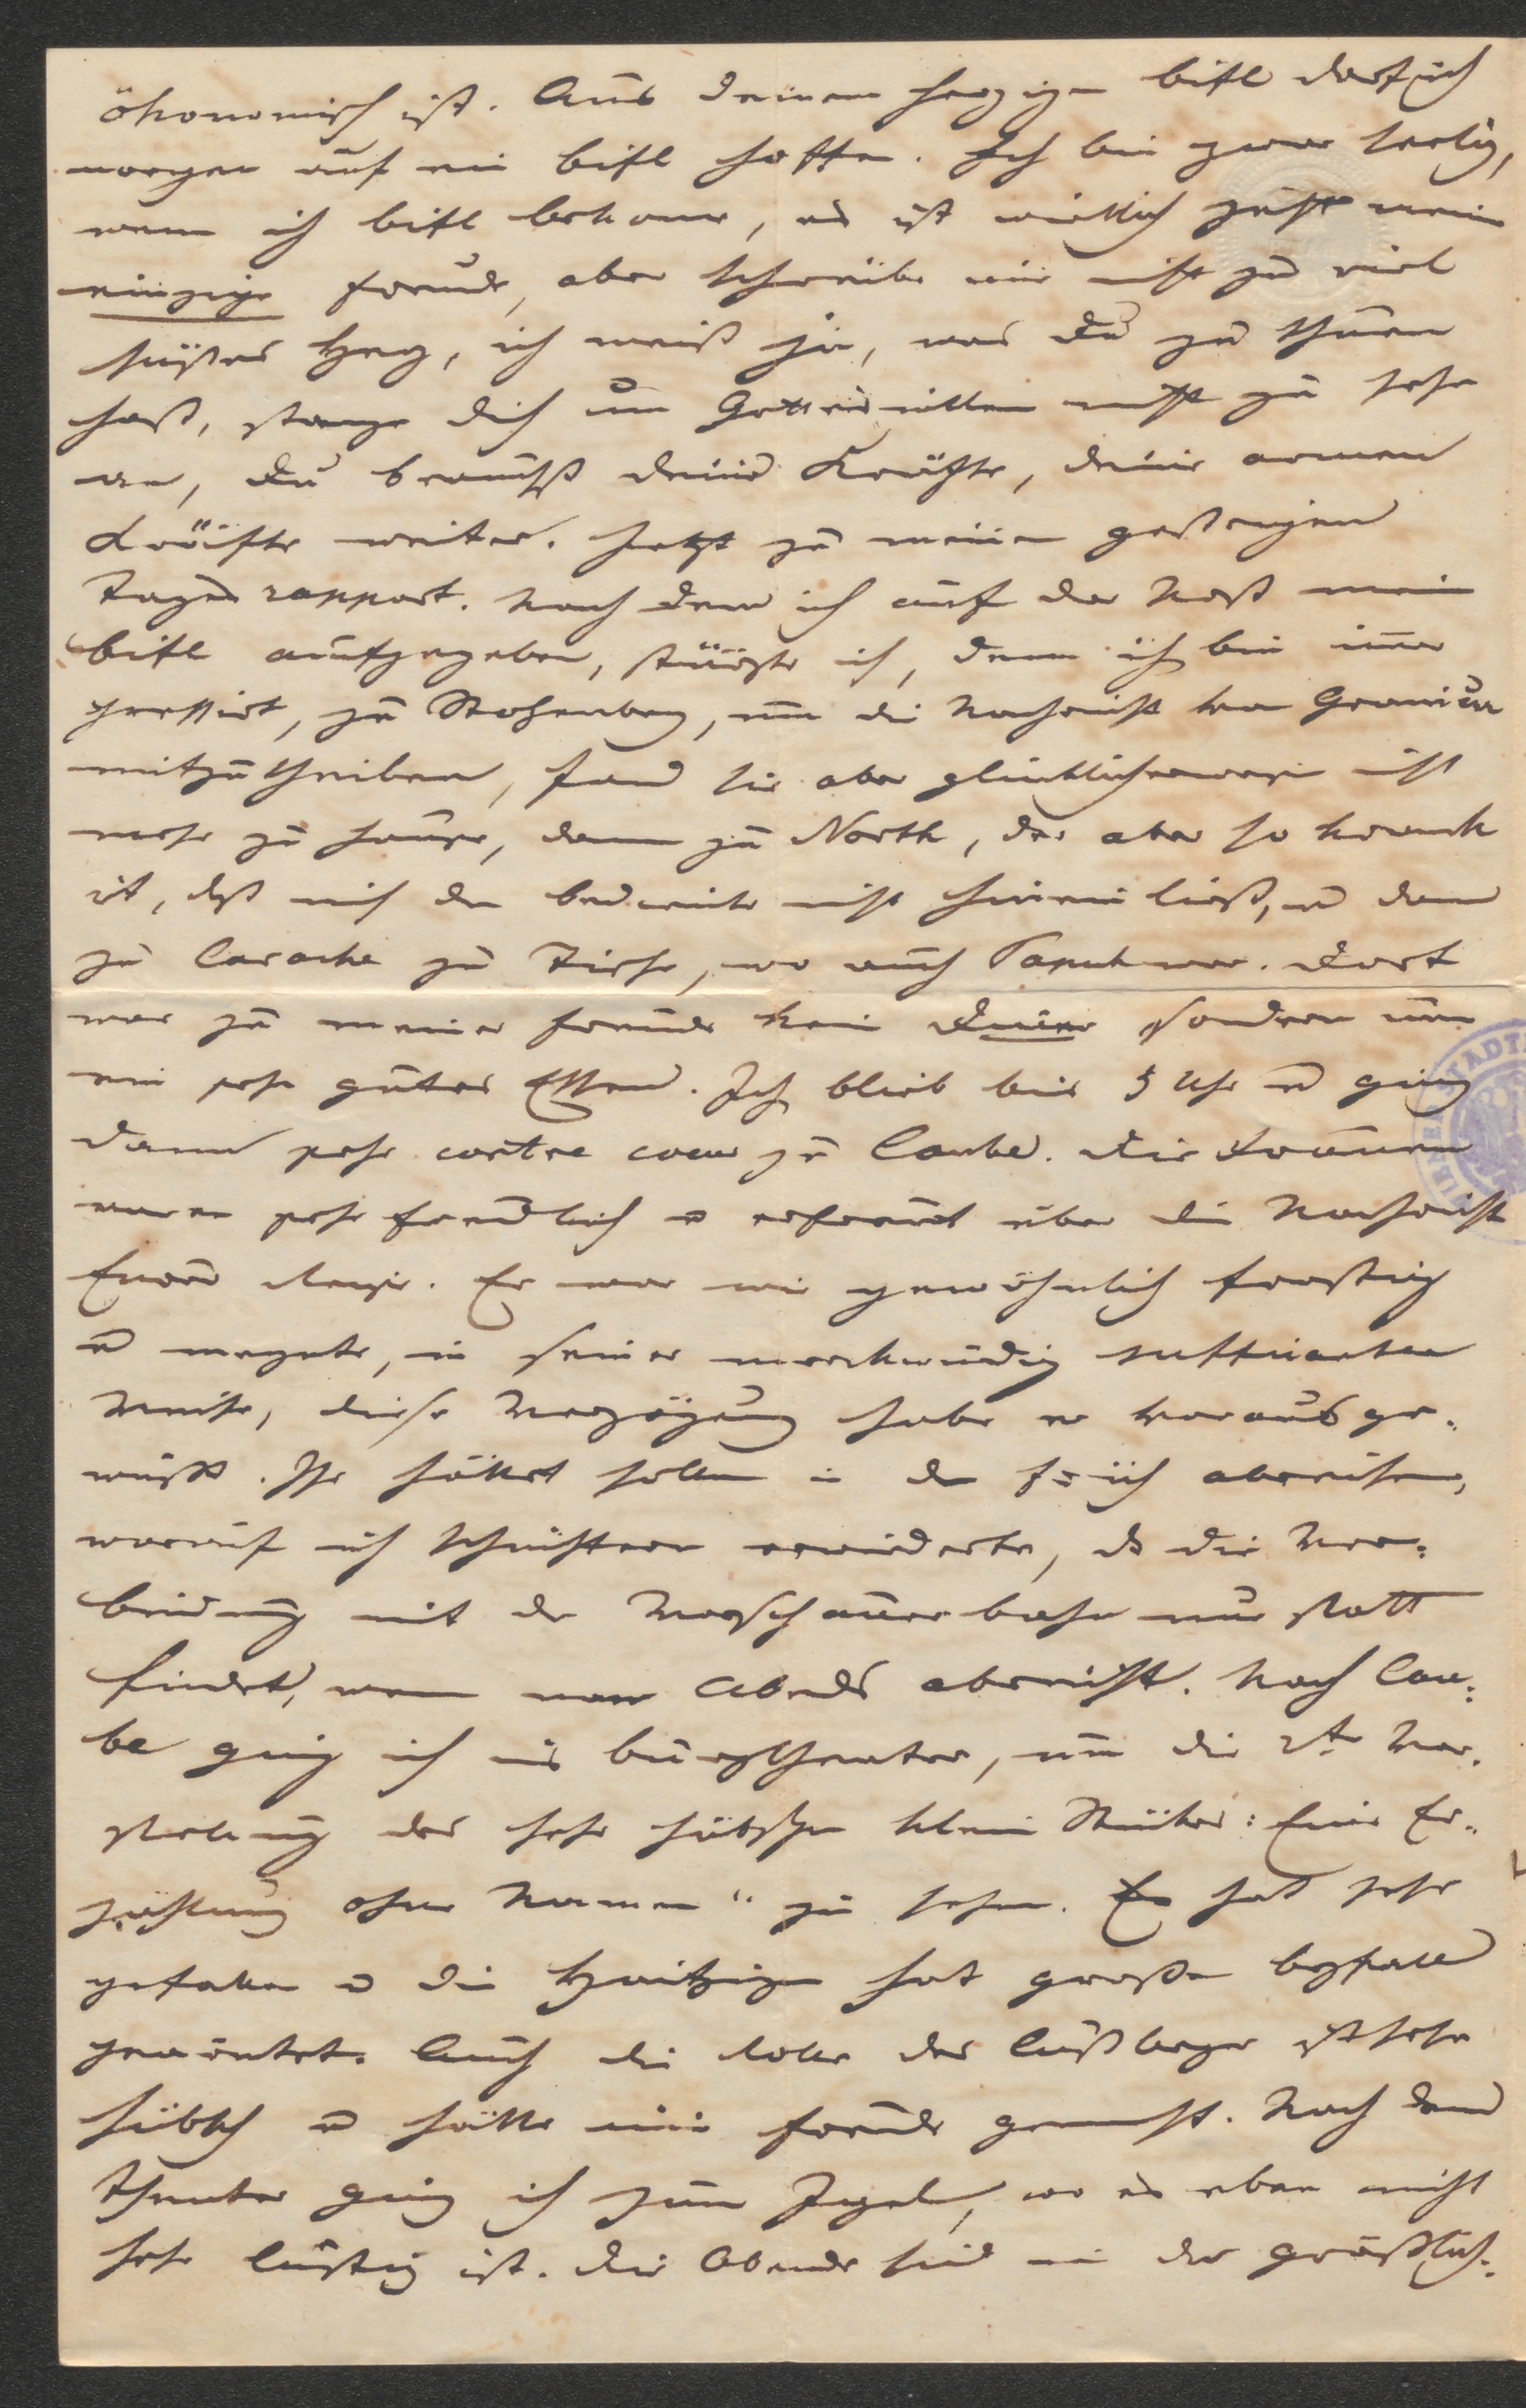 ökonomisch ist. Aus deinem herzigen bifl darf ich
morgen auf ein bifl hoffen. Ich bin zwar seelig,
wenn ich bifl bekome, es ist wirklich jetzt mein
einzige Freude, aber schreibe mir nicht zu viel
süßes Herz, ich weiß ja, was Du zu thuen
hast, strenge dich um Gotteswillen nicht zu sehr
an, Du brauchst deine Kräfte, deine armen
Kräfte weiter. Jetzt zu meinem gestrigen
Tages rapport. Nach dem ich auf der Post mein
bifl aufgegeben, stürzte ich, denn ich bin imer
pressirt, zu, um die Nachricht von
mitzutheilen, fand sie aber glücklicherweise nicht
mehr zu Hause, dann zu North, der aber so krank
ist, dß mich der bediente nicht hinein ließ, u dann
zu Laroche zu Tische, wo auch war. Dort
war zu meiner Freude kein Diner sondern nur
ein sehr gutes Essen. Ich blieb bis 5 Uhr u ging
dann sehr contre coeur zu Laube. Die Frauen
waren sehr freundlich u erfreut über die Nachricht
Eurer Reise. Er war wie gewöhnlich frostig
u meynte, in seiner merkwürdig suffisanten
Weise, diese Verzögerung habe er voraus ge-
wußt. Ihr hättet sollen in der Früh abreisen,
worauf ich schüchtern erwiderte, dß die Ver-
bindung mit der Warschauerbahn nur statt
findet, wenn man Abends abreist. Nach Lau-
be ging ich ins burgtheater, um die 2te Vor-
stellung des sehr hübschen kleinen Stückes: Eine Er-
zählung ohne Namen" zu sehen. Es hat sehr
gefallen u die Haitzinger hat großen beyfall
geerntet. Auch die Rolle der ist sehr
hübsch u hätte mir Freude gemacht. Nach dem
Theater ging ich zum, wo es eben nicht
sehr lustig ist. Die Abende sind mir die gräßlich-